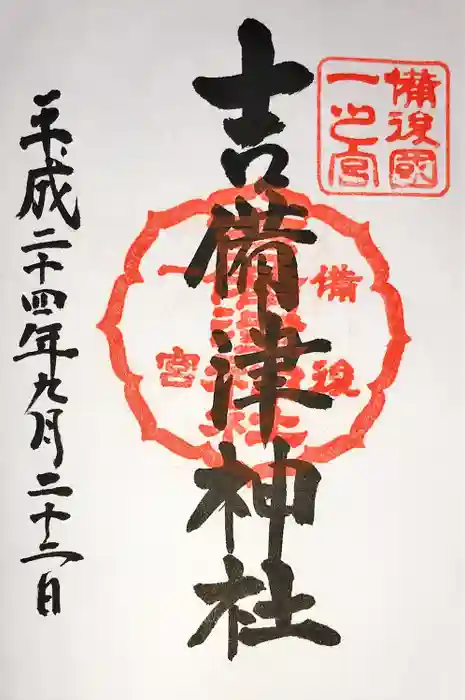 備後國
一之宮
吉備津神社
備後
一宮
吉備津神社
平成二十四年九月二十二日